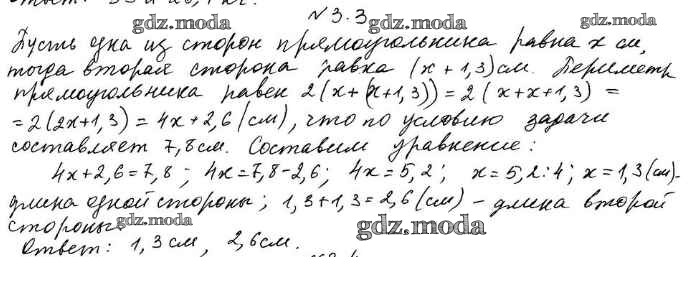 № 3.3
gdz.moda
gdz.moda
Пусть одна из сторон прямоугольника равна x см,
тогда вторая сторона равна (x + 1,3) см. Периметр
прямоугольника равен 2(x + (x + 1,3)) = 2(x + x + 1,3) =
= 2(2x + 1,3) = 4x + 2,6 (см), что по условию задачи
составляет 7,8 см. Составим уравнение:
4x + 2,6 = 7,8; 4x = 7,8 - 2,6; 4x = 5,2; x = 5,2 : 4; x = 1,3 (см) -
длина одной стороны; 1,3 + 1,3 = 2,6 (см) - длина второй
стороны.
gdz.moda
gdz.moda
Ответ: 1,3 см, 2,6 см.